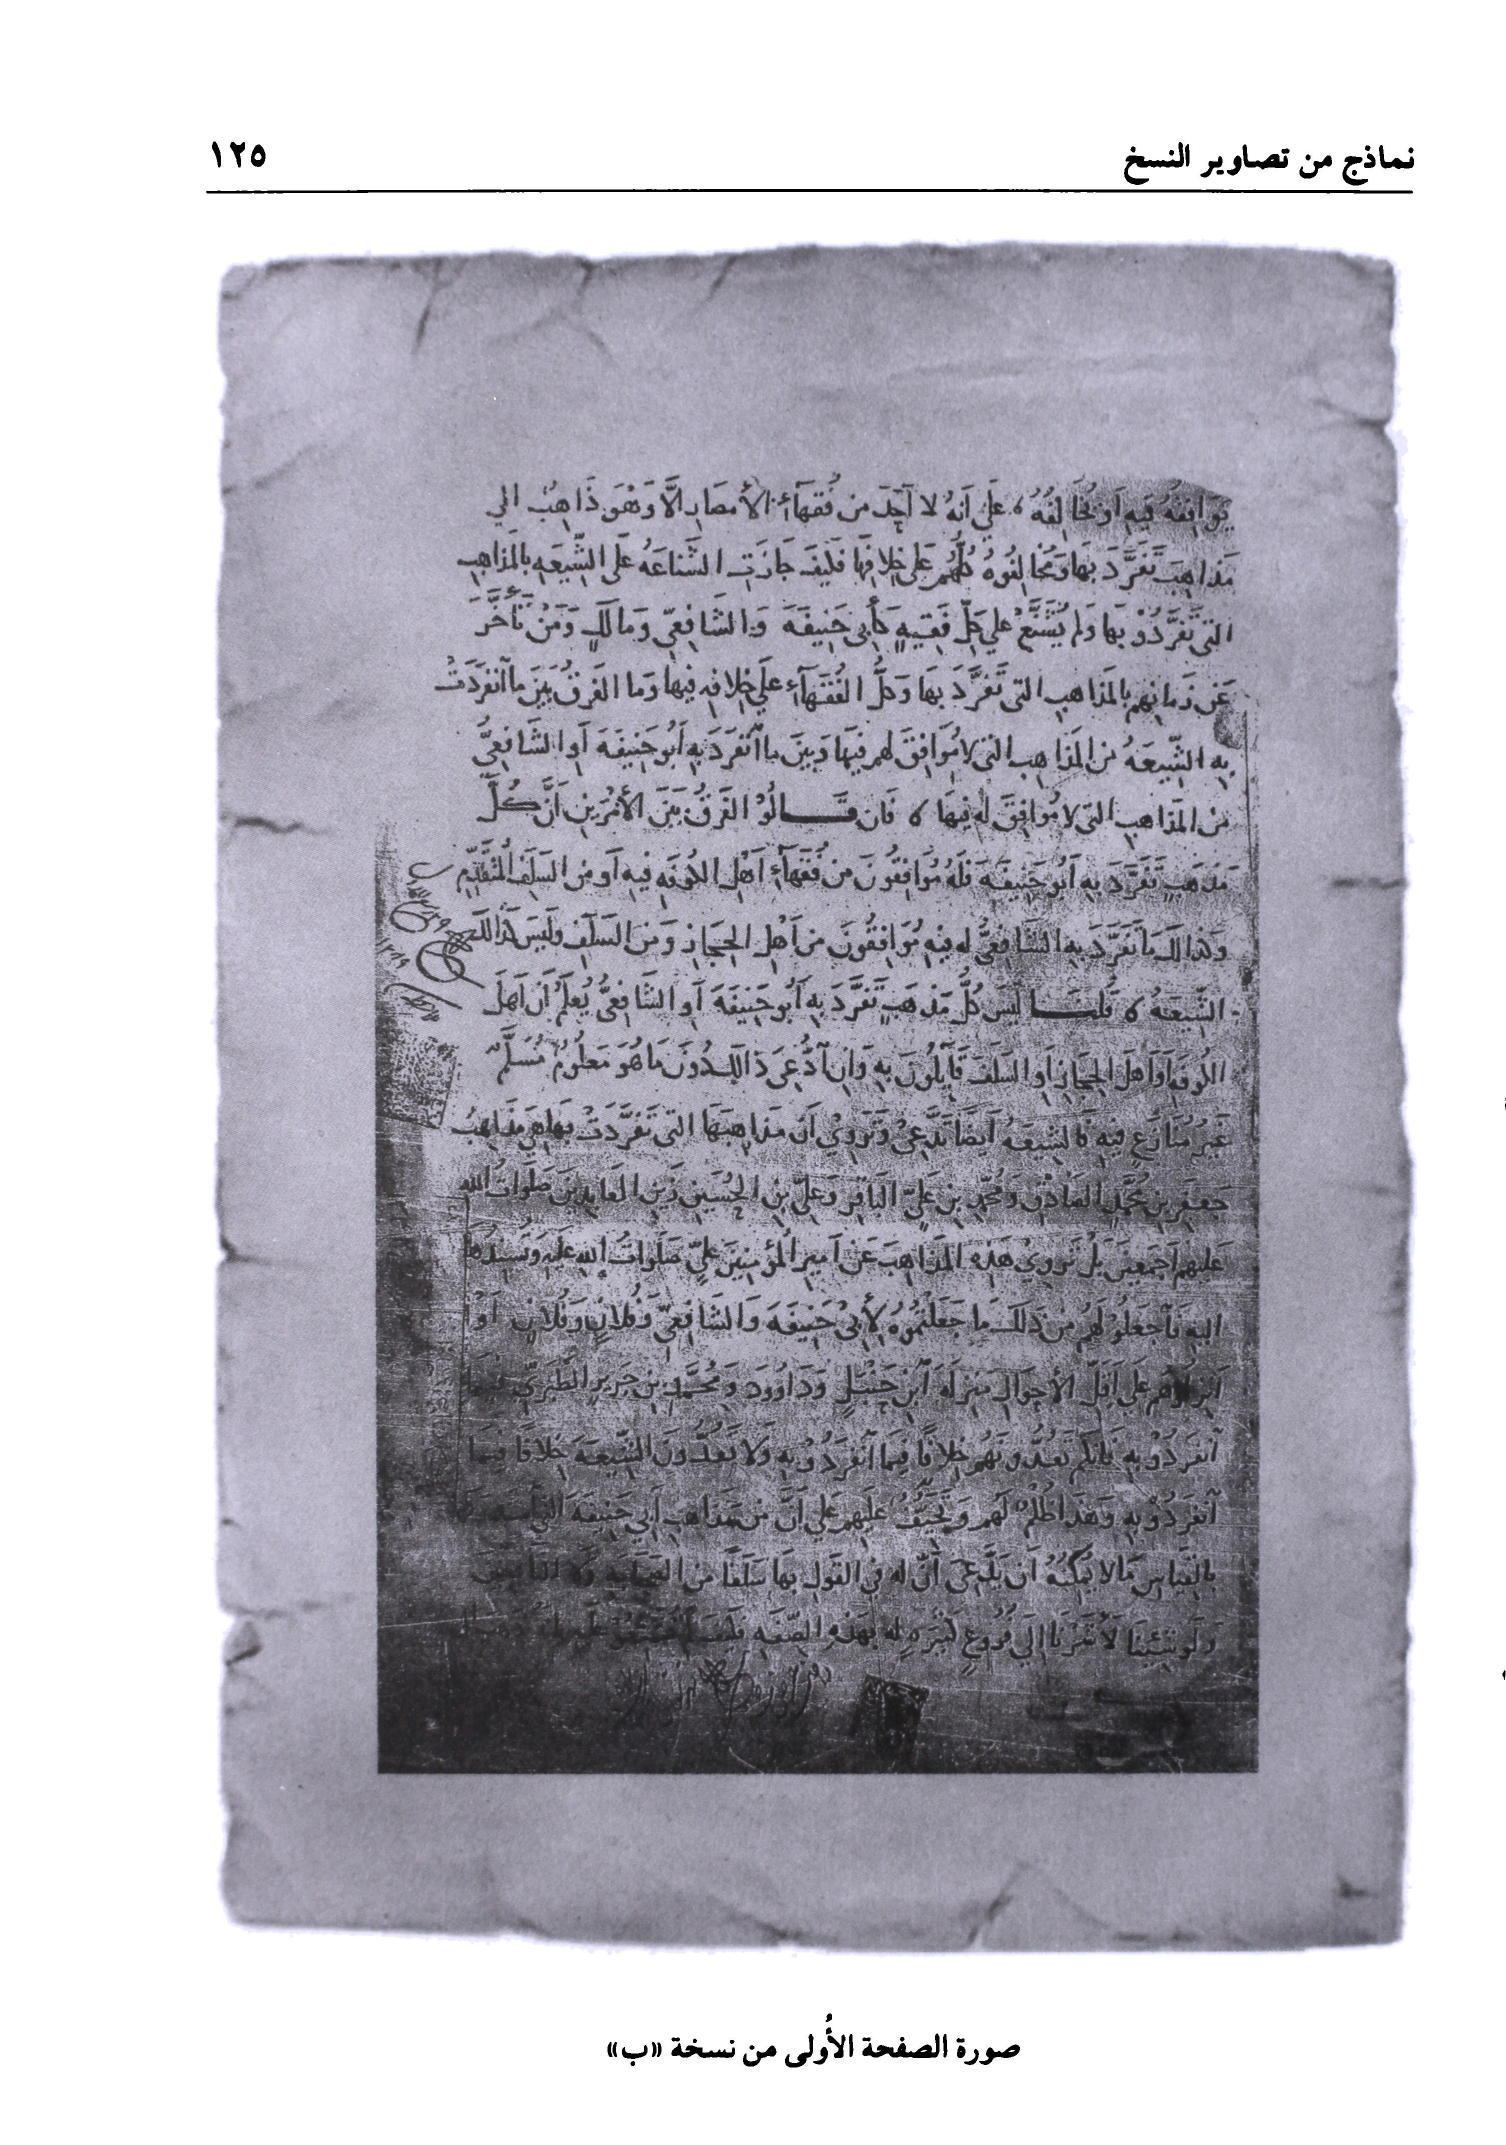 نماذج من تصاوير النسخ ١٢٥
يوافقه فيه او يخالفه على أنه لا أجد من فُقهآء الأمصار الاَّ وَهْوَ ذَاهِبٌ الي
مَذاهِبَ تَفَرَّدَ بها ومُخالِفُوهُ كلُّهُم عَلى خِلافِها فكَيفَ جَازَتِ الشَّناعَهُ عَلَى الشِّيعَهِ بالمَذاهِبِ
التي تَفَرَّدُوْ بها وَلم يُشَنَّعْ علي كلِّ فَقيهٍ كأَبي حَنِيفَهَ وَالشَافِعيّ وَمالكٍ وَمَنْ تَأَخَّرَ
عَن زمانِهِم بالمَذاهِبِ التي تَفَرَّدَ بها وَكلُّ الفُقَهآءِ عَلي خِلافِهِ فيها وَما الفَرقُ بَينَ ما آنفَرَدَتْ
بِهِ الشِّيعَهُ من المَذاهِبِ التي لا مُوَافِقَ لهم فيها وَبينَ ما آنفَرَدَ بهِ أَبُو حَنِيفَهَ أَوِ الشَافِعيُّ
مِنَ المَذاهِبِ التي لا مُوافِقَ لهُ فيها فَان قَالُوْ الفَرقُ بَينَ الأَمرَينِ أَنَّ كُلَّ
مَذهَبٍ تَفَرَّدَ بهِ أَبُو حَنِيفَهَ فَلَهُ مُوَافِقُونَ من فُقَهآءِ أَهلِ الكُوفَهِ فيهِ أَو منَ السَلَفِ المُتَقَدِّمِ
وَكذالكَ ما تَفَرَّدَ بهِ الشَافِعيُّ له فيهِ مُوَافِقُونَ من أَهلِ الحِجازِ وَمنَ السَلَفِ وَليسَ كذالكَ
الشِّيعَهُ قُلنَا لَيسَ كُلُّ مَذهَبٍ تَفَرَّدَ بهِ أَبُو حَنِيفَهَ أَوِ الشَافِعيُّ يُعلَمُ أَن أَهلَ
الكُوفَهِ أَو أَهلَ الحِجازِ أَوِ السَلَفَ قَآيِلُونَ بهِ وَإِنِ آدُّعِيَ ذالكَ دُونَ ما هُوَ مَعلُومٌ مُسَلَّمٌ
غَيرُ مُنازَعٍ فيهِ فالشِّيعَهُ أَيضًا تَدَّعِيْ وَتَروِيْ أَن مَذاهِبَها التي تَفَرَّدَتْ بها هي مَذاهِبُ
جَعفَرِ بنِ مُحَمَّدٍ الصَادِقِ وَمُحَمَّدِ بنِ عَليٍّ الباقِرِ وَعَليِّ بنِ الحُسَينِ زَينِ العابِدِينَ صَلَواتُ اللهِ
عَليهِم أَجمَعِينَ بَلْ تَروِيْ هَذِهِ المَذاهِبَ عَن أَميرِ المُؤمِنِينَ عَليٍّ صَلَواتُ اللهِ عليهِ وَتُسنِدُها
اليهِ فَآجعَلُوْ لَهُم مِن ذَلكَ مَا جَعَلْتُمُوهُ لأَبي حَنِيفَهَ وَالشَافِعيِّ وَفُلانٍ وَفُلانٍ أَوْ
أَنزِلُوهُم عَلى أَقَلِّ الأَحوالِ مَنزِلَهَ آبنِ حَنبَلٍ وَدَاوُودَ وَمُحَمَّدِ بنِ جَريرٍ الطَبَريِّ فيما
آنفَرَدُوْ بهِ فَإِنكُم تَعُدُّونَهُم خِلافًا فيما آنفَرَدُوْ بهِ وَلا تَعُدُّونَ الشِّيعَهَ خِلافًا فيما
آنفَرَدُوْ بهِ وَهَذا ظُلمٌ لَهُم وَتَحَيُّفٌ عَليهِم عَلي أَنَّ من مَذاهِبِ أَبي حَنِيفَهَ
بالقِياسِ مَا لا يُمكِنُهُ أَن يَدَّعِيَ أَنَّ له في القَولِ بها سَلَفًا من الصَحابَهِ
وَلو شِئنا لأَشَرنا الي فُرُوعٍ كَثِيرَهٍ له بهَذِهِ الصِّفَهِ
صورة الصفحة الأُولى من نسخة «ب»